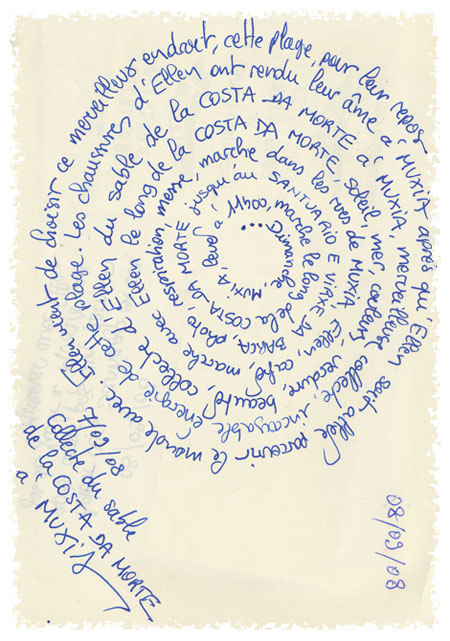 ...Dimanche, MUXIA, lever à 11h00, marche le long de la COSTA DA MORTE jusqu'au SANTUARIO E VIRXE DA BARCA, photo, respiration, messe, marche dans les rues de MUXIA, Ellen, café, marche avec Ellen le long de la COSTA DA MORTE, soleil, mer, couleurs, verdure, beauté, collecte d'Ellen du sable de la COSTA DA MORTE à MUXIA, merveilleuse collecte, incroyable énergie de cette plage. Les chaussures d'Ellen ont rendu leur âme à MUXIA après qu'Ellen soit allée parcourir le monde avec. Ellen vient de choisir ce merveilleux endroit, cette plage, pour leur repos
7/09/08
Collecte du sable
de la COSTA DA MORTE
à MUXIA
08/09/08